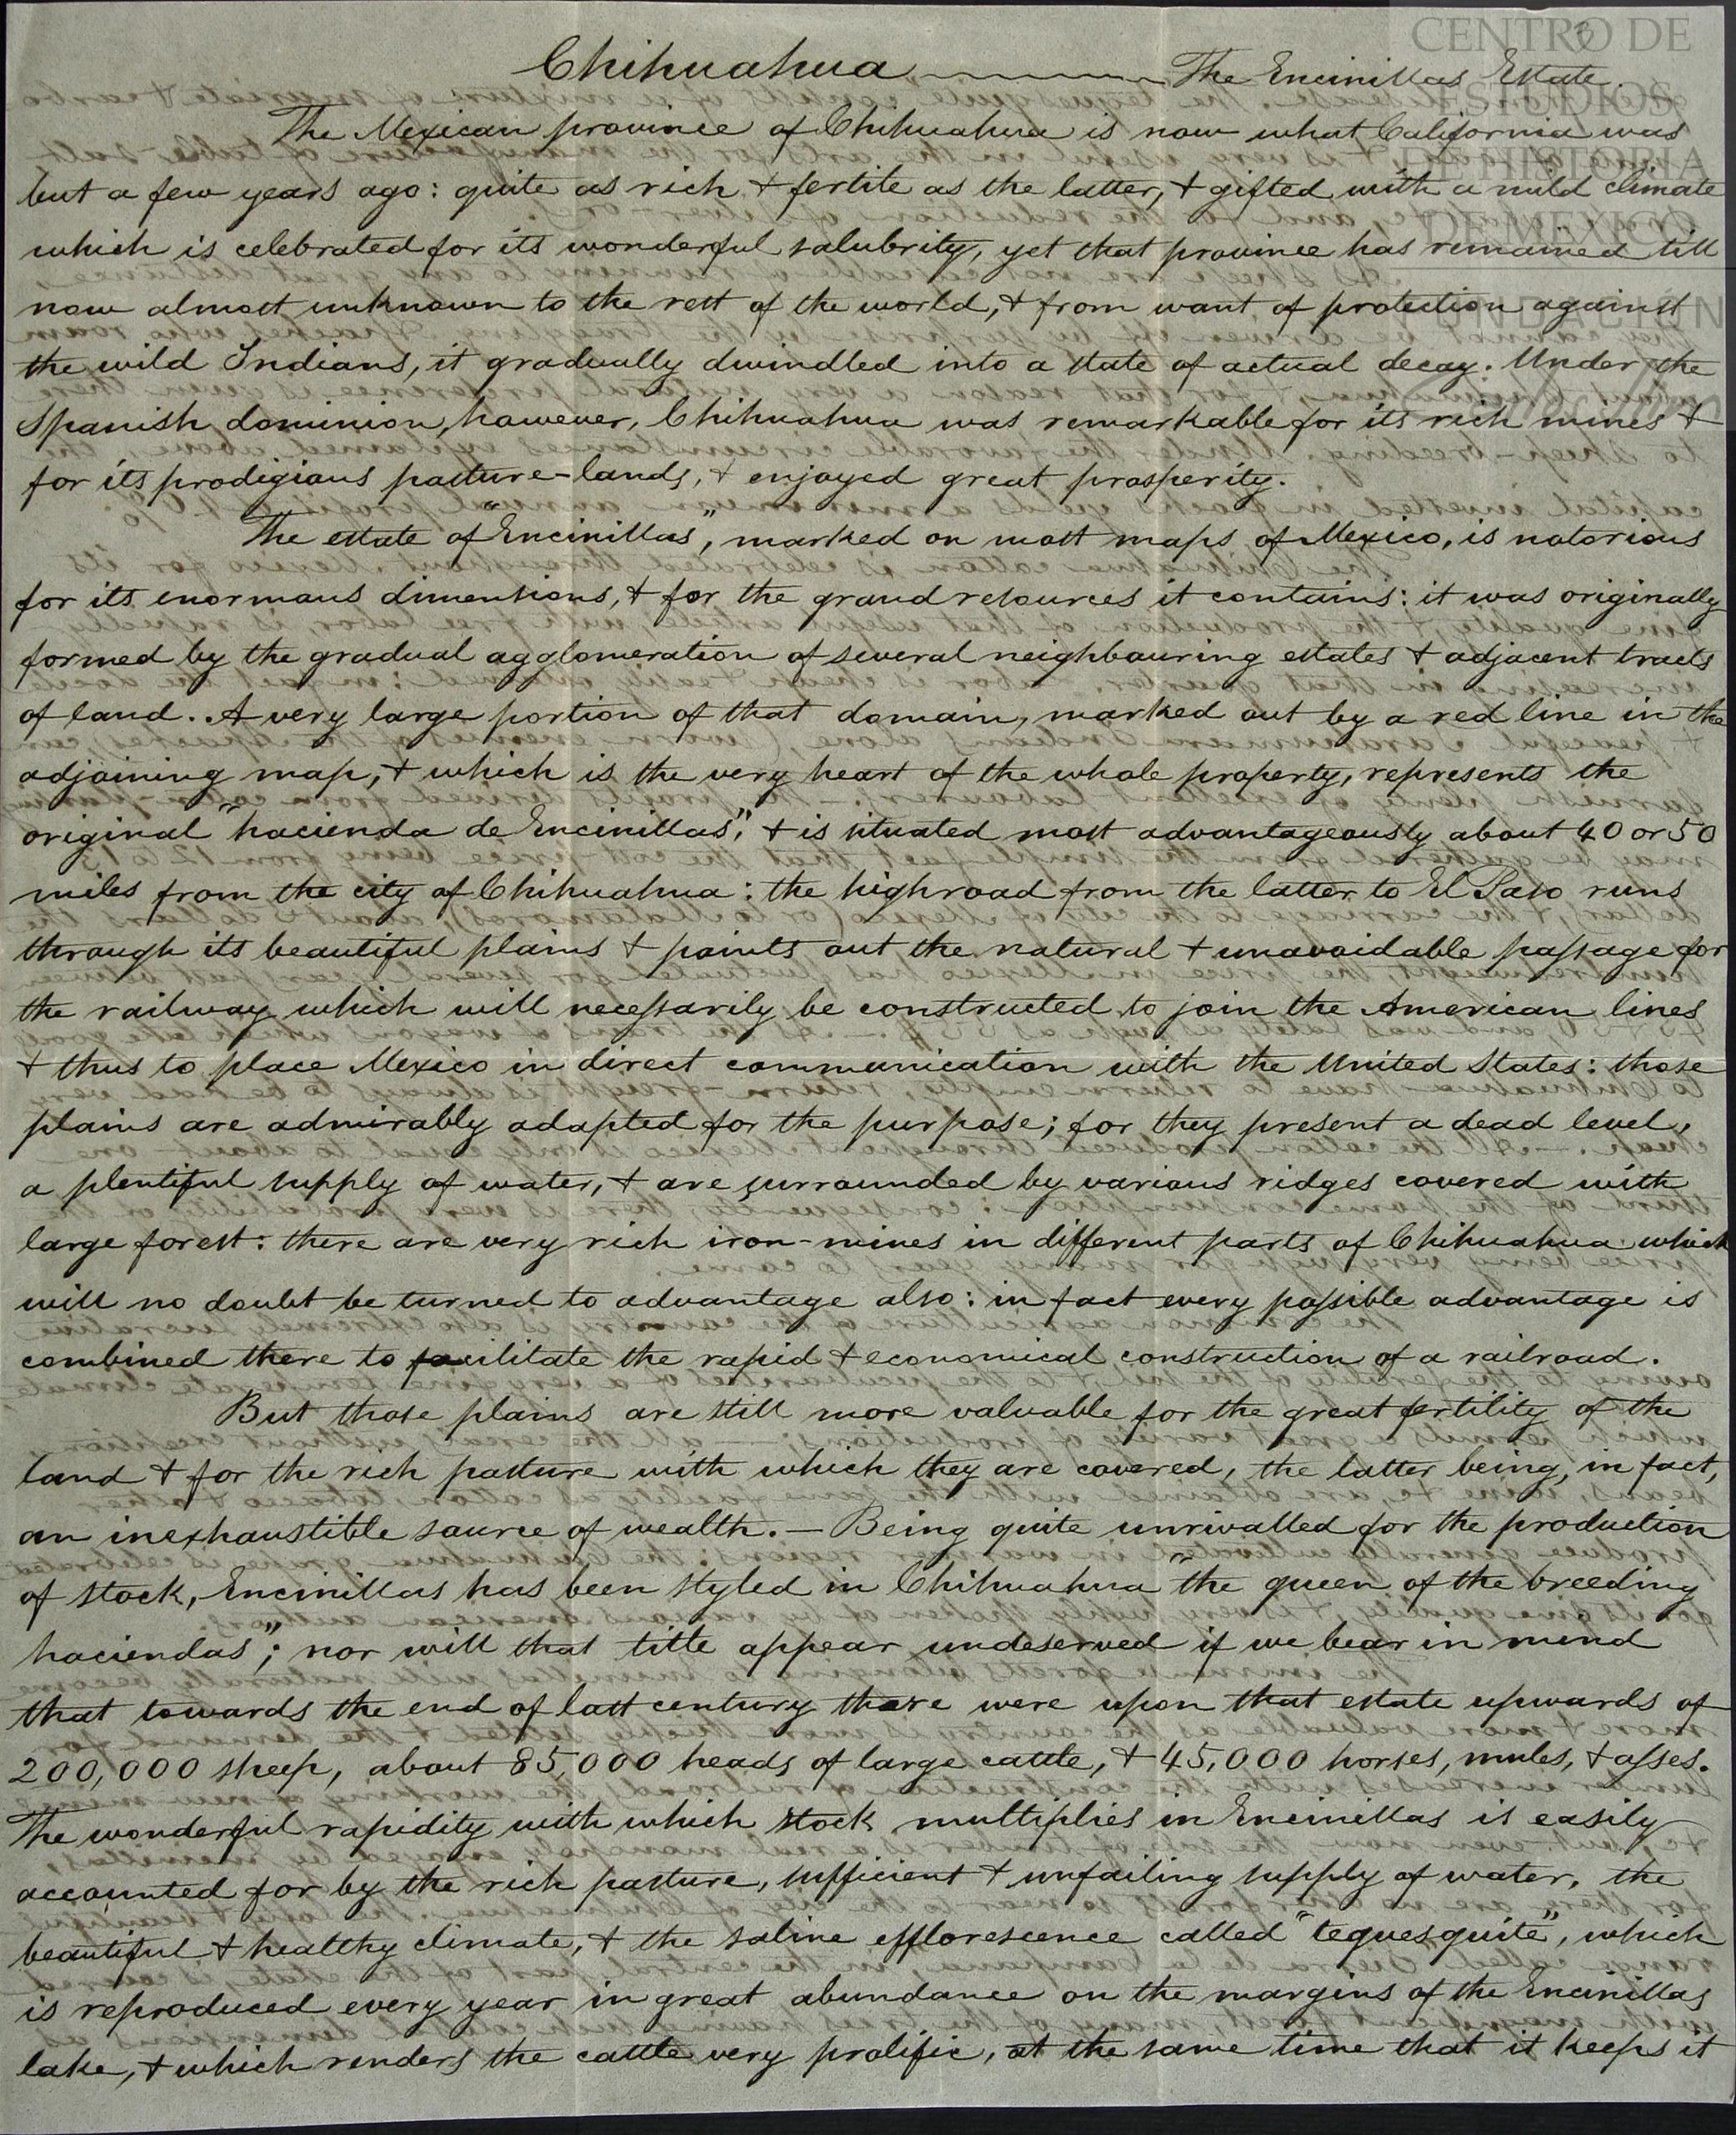 3
CENTRO DE
ESTUDIOS
DE HISTORIA
DE MEXICO
FUNDACIÓN
Chihuahua — The Encinillas Estate.
The Mexican province of Chihuahua is now what California was
but a few years ago: quite as rich & fertile as the latter, & gifted with a mild climate
which is celebrated for its wonderful salubrity, yet that province has remained till
now almost unknown to the rest of the world, & from want of protection against
the wild Indians, it gradually dwindled into a state of actual decay. Under the
Spanish dominion, however, Chihuahua was remarkable for its rich mines &
for its prodigious pasture-lands, & enjoyed great prosperity.
The estate of "Encinillas", marked on most maps of Mexico, is notorious
for its enormous dimensions, & for the grand resources it contains: it was originally
formed by the gradual agglomeration of several neighbouring estates & adjacent tracts
of land. A very large portion of that domain, marked out by a red line in the
adjoining map, & which is the very heart of the whole property, represents the
original "hacienda de Encinillas", & is situated most advantageously about 40 or 50
miles from the city of Chihuahua: the highroad from the latter to El Paso runs
through its beautiful plains & points out the natural & unavoidable passage for
the railway which will necessarily be constructed to join the American lines
& thus to place Mexico in direct communication with the United States: those
plains are admirably adapted for the purpose; for they present a dead level,
a plentiful supply of water, & are surrounded by various ridges covered with
large forest: there are very rich iron-mines in different parts of Chihuahua which
will no doubt be turned to advantage also: in fact every possible advantage is
combined there to facilitate the rapid & economical construction of a railroad.
But those plains are still more valuable for the great fertility of the
land & for the rich pasture with which they are covered, the latter being, in fact,
an inexhaustible source of wealth. — Being quite unrivalled for the production
of stock, Encinillas has been styled in Chihuahua "the queen of the breeding
haciendas"; nor will that title appear undeserved if we bear in mind
that towards the end of last century there were upon that estate upwards of
200,000 sheep, about 85,000 heads of large cattle, & 45,000 horses, mules, & asses.
The wonderful rapidity with which stock multiplies in Encinillas is easily
accounted for by the rich pasture, sufficient & unfailing supply of water, the
beautiful & healthy climate, & the saline efflorescence called "tequesquite", which
is reproduced every year in great abundance on the margins of the Encinillas
lake, & which renders the cattle very prolific, at the same time that it keeps it